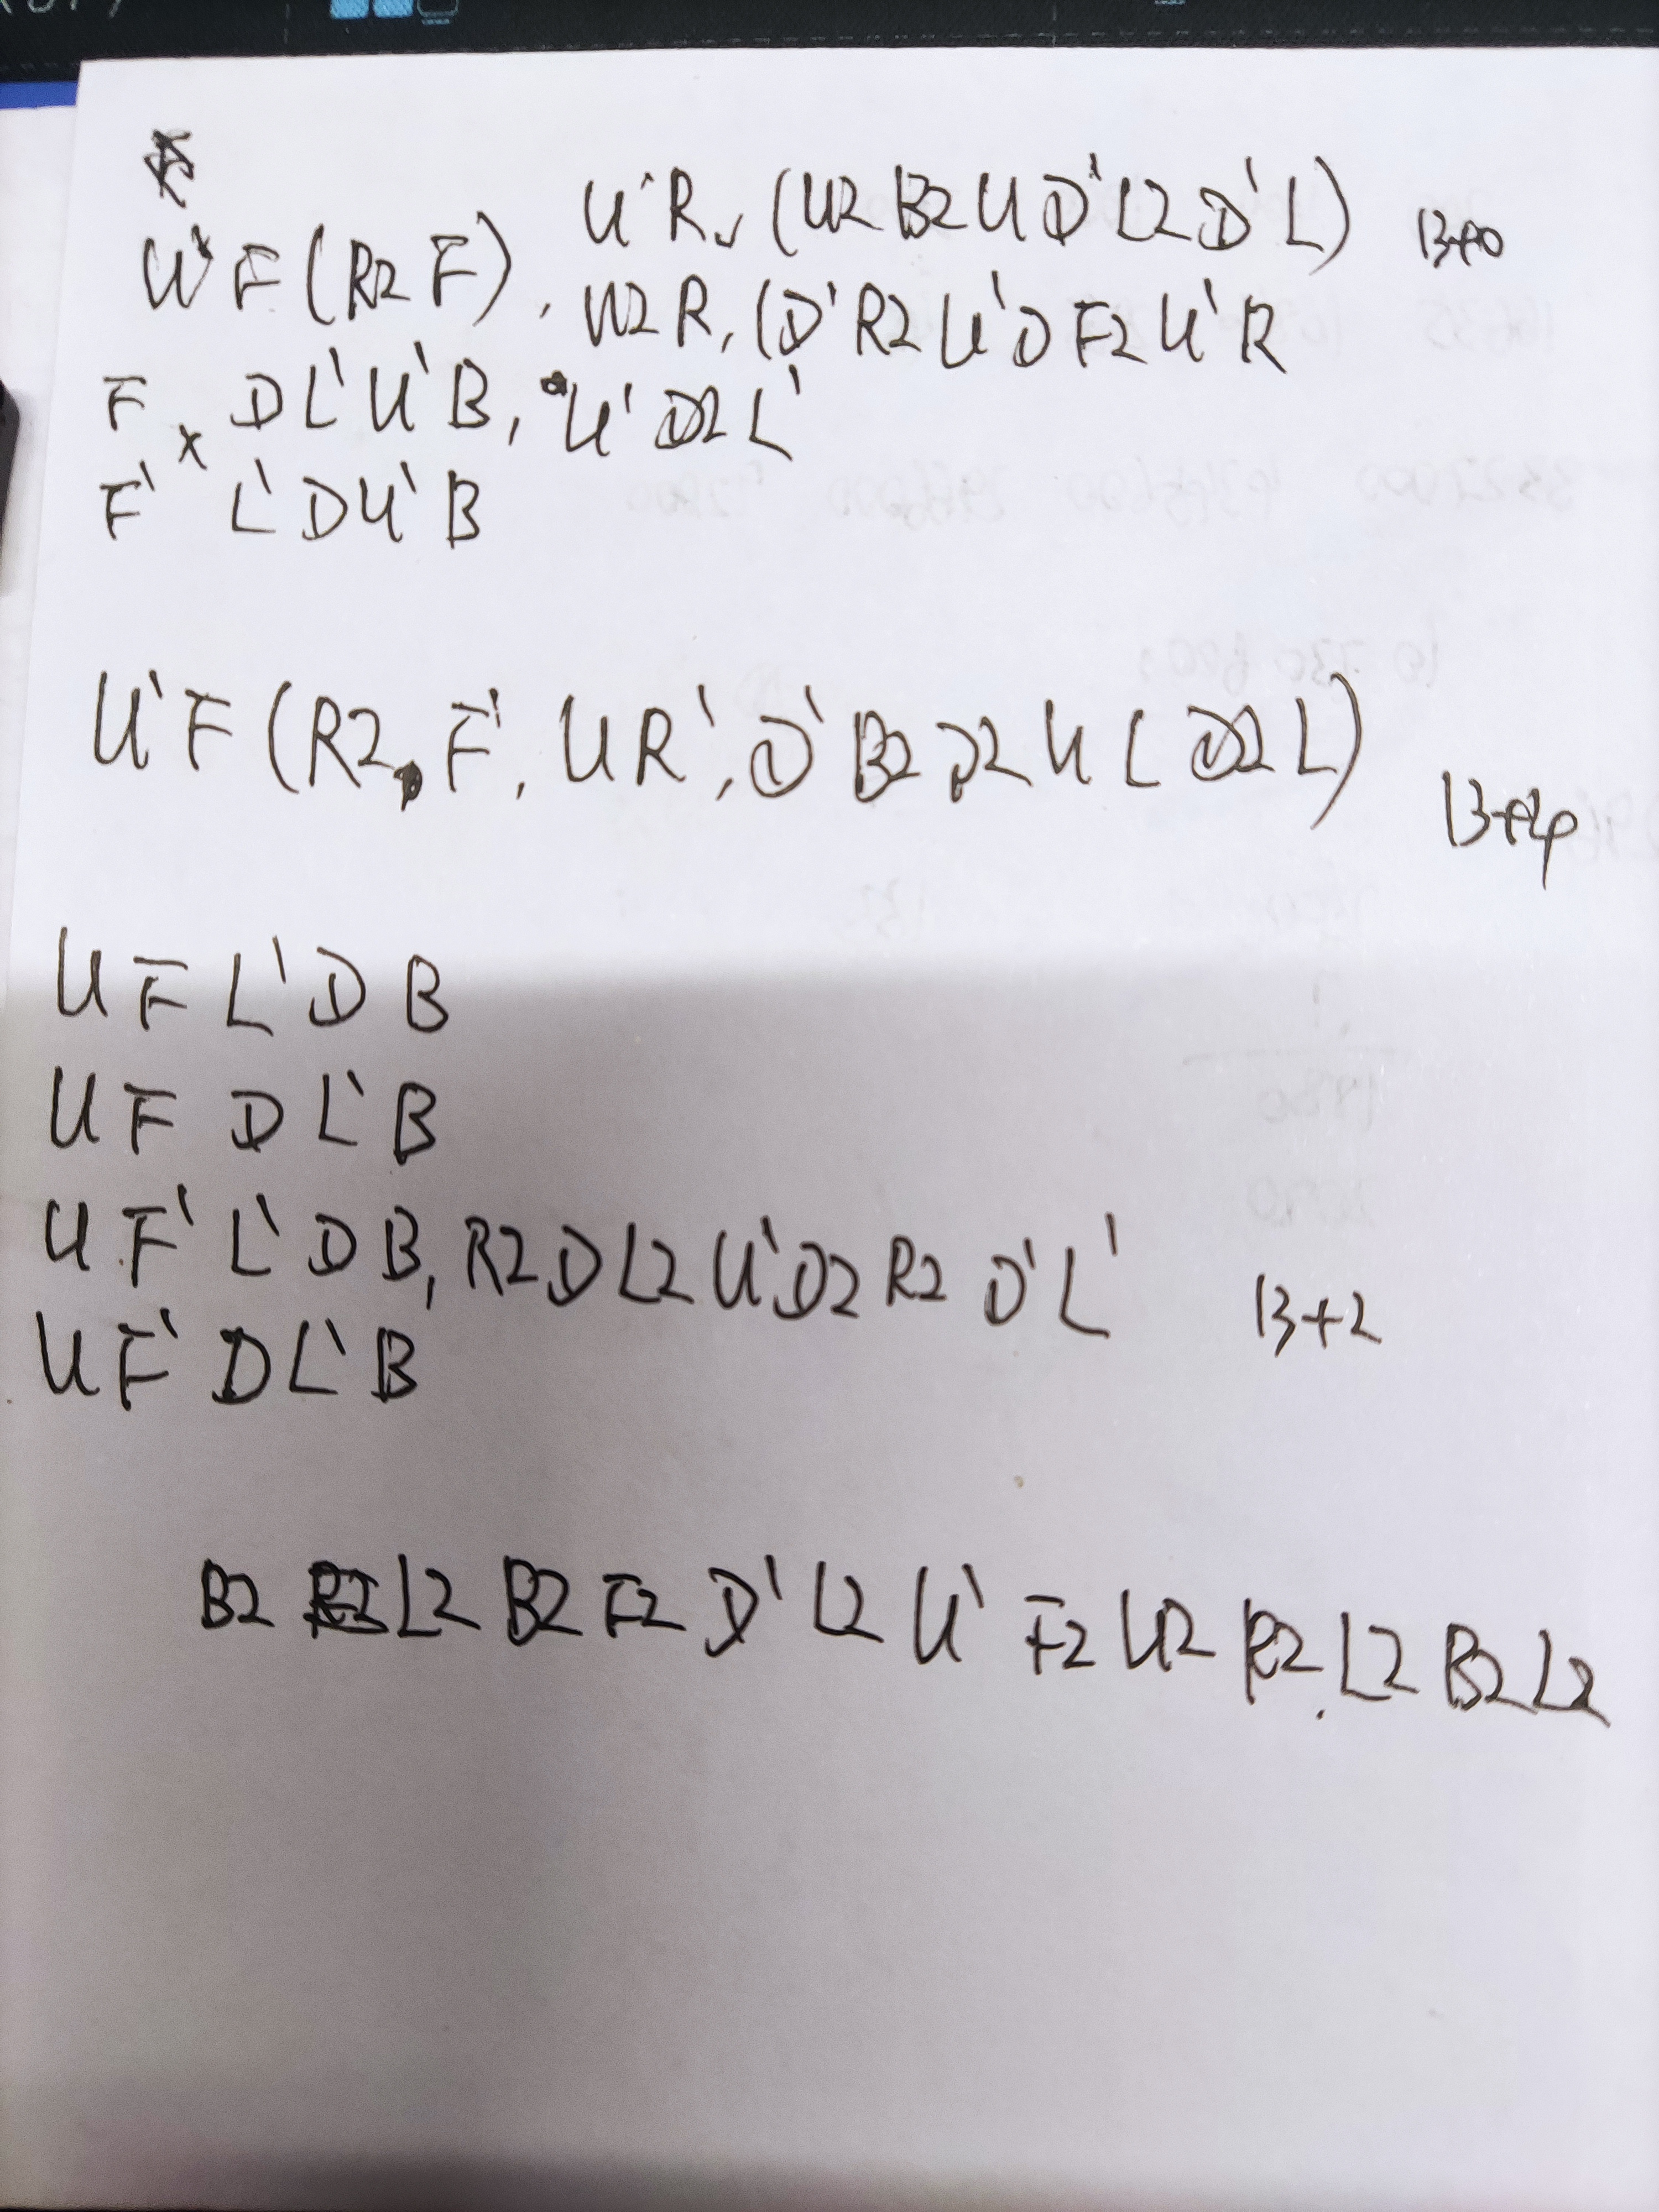 U' F (R2 F), U' R, (U2 B2 U D' L2 D' L) 13+0
U2 R, (D' R2 U' D F2 U' R
F x D L' U' B, U' D2 L'
F' L' D U' B
U' F (R2, F', U R', D' B2 D2 U L D2 L)
U F L' D B
U F D L' B
U F' L' D B, R2 D L2 U' D2 R2 D' L' 13+2
U F' D L' B
B2 L2 B2 F2 D' L2 U' F2 U2 R2 L2 B2 L2